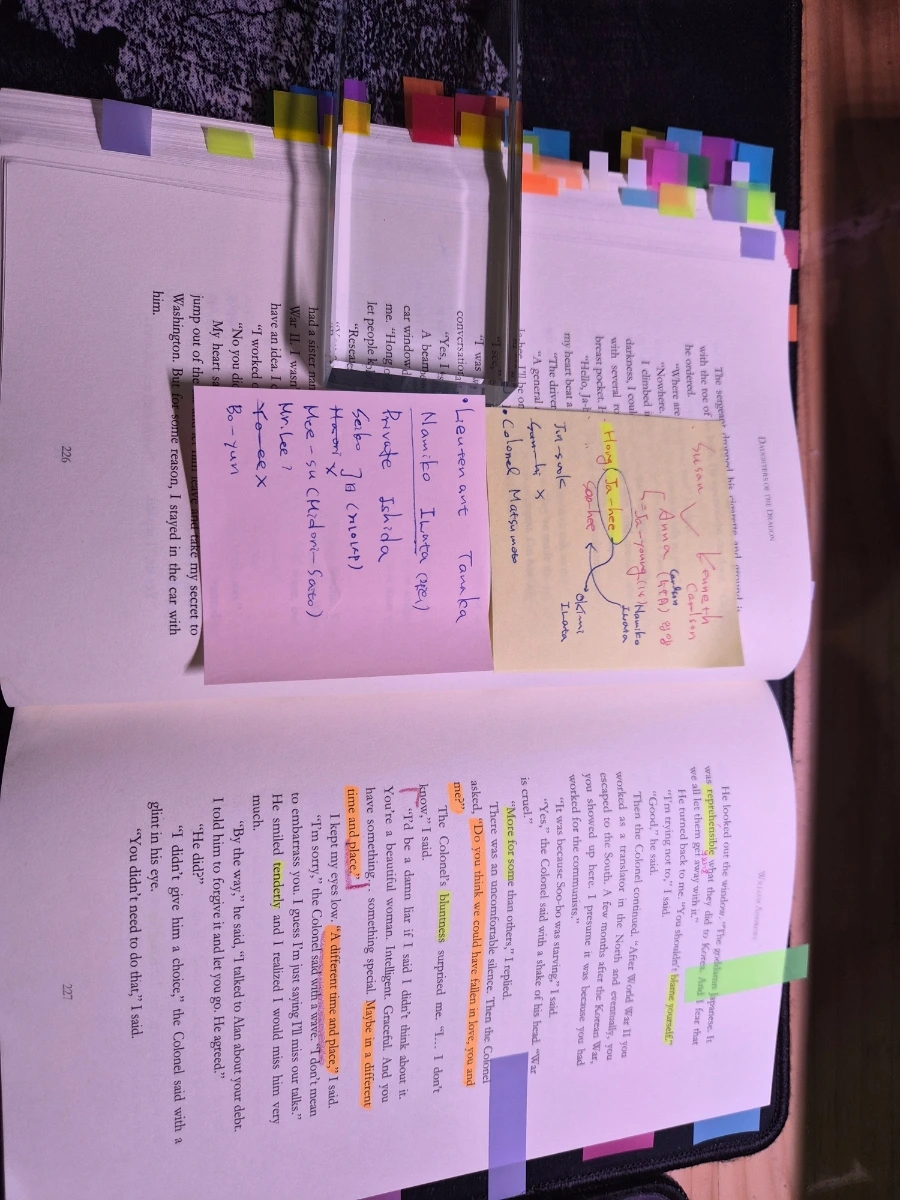 DAUGHTERS OF THE DRAGON
The sergeant
with the toe of
he ordered.
"Where are
"Nowhere.
I climbed
darkness, I coul
with several
breast pocket.
"Hello, Ja-
my heart beat a
"The driver
"A general
"I was
conversationa
"Yes, I
A beam
car window
me. "Hong
let people k
"Resea
had a sister na
War II. I wasn
have an idea. I
"I worked
"No you di
My heart
jump out of the
take my secret to
Washington. But for some reason, I stayed in the car with
him.
226
Susan
Kenneth
Carlson
Anna
Carlson
Ja-young (14)
Namiko
Iwata
Hong Ja-hee
Soo-hee
Okimi
Iwata
Jin-sook
x
• Colonel Matsumoto
• Lieutenant Tanaka
Namiko Iwata
Private Ishida
Seiko
x
Mee-su (Midori-Sato)
Mr. Lee ?
x
Bo-yun
WILLIAM ANDREWS
He looked out the window. "The goddamn Japanese. It
was reprehensible what they did to Korea. And I fear that
we all let them get away with it."
He turned back to me. "You shouldn't blame yourself."
"I'm trying not to," I said.
"Good," he said.
Then the Colonel continued. "After World War II you
worked as a translator in the North and eventually, you
escaped to the South. A few months after the Korean War,
you showed up here. I presume it was because you had
worked for the communists."
"It was because Soo-bo was starving," I said.
"Yes," the Colonel said with a shake of his head. "War
is cruel."
"More for some than others," I replied.
There was an uncomfortable silence. Then the Colonel
asked, "Do you think we could have fallen in love, you and
me?"
The Colonel's bluntness surprised me. "I… I don't
know," I said.
"I'd be a damn liar if I said I didn't think about it.
You're a beautiful woman. Intelligent. Graceful. And you
have something… something special. Maybe in a different
time and place."
I kept my eyes low. "A different time and place," I said.
"I'm sorry," the Colonel said with a wave. "I don't mean
to embarrass you. I guess I'm just saying I'll miss our talks."
He smiled tenderly and I realized I would miss him very
much.
"By the way," he said, "I talked to Alan about your debt.
I told him to forgive it and let you go. He agreed."
"He did?"
"I didn't give him a choice," the Colonel said with a
glint in his eye.
"You didn't need to do that," I said.
227